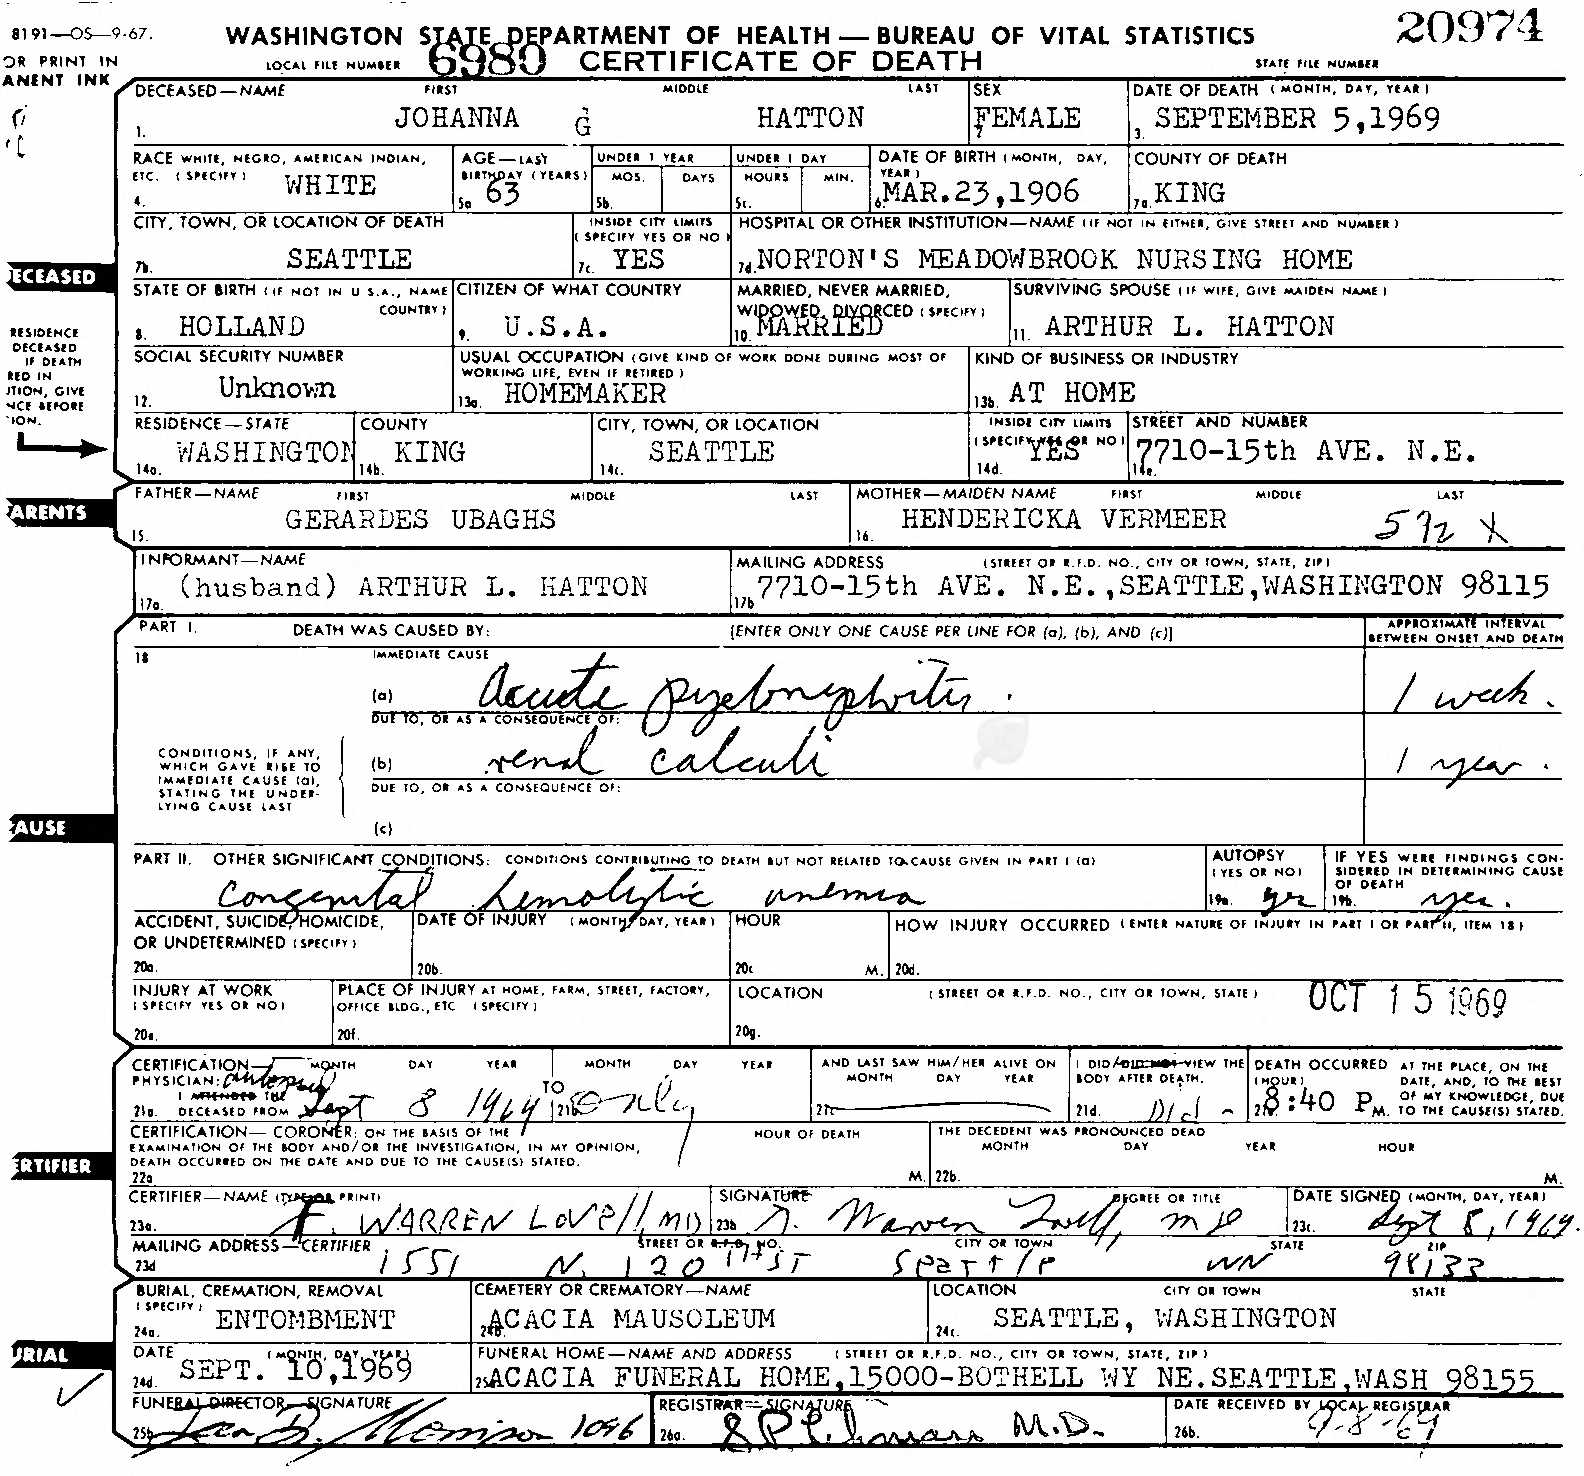 8191—OS—9-67.
WASHINGTON STATE DEPARTMENT OF HEALTH — BUREAU OF VITAL STATISTICS
20974
OR PRINT IN
ANENT INK
LOCAL FILE NUMBER 6980 CERTIFICATE OF DEATH
STATE FILE NUMBER
DECEASED—NAME FIRST MIDDLE LAST SEX DATE OF DEATH (MONTH, DAY, YEAR)
1. JOHANNA G HATTON 2 FEMALE 3. SEPTEMBER 5,1969
RACE WHITE, NEGRO, AMERICAN INDIAN, ETC. (SPECIFY) AGE—LAST BIRTHDAY (YEARS) UNDER 1 YEAR UNDER 1 DAY DATE OF BIRTH (MONTH, DAY, YEAR) COUNTY OF DEATH
MOS. DAYS HOURS MIN.
4. WHITE 5a 63 5b. 5c. 6. MAR.23,1906 7a. KING
CITY, TOWN, OR LOCATION OF DEATH INSIDE CITY LIMITS (SPECIFY YES OR NO) HOSPITAL OR OTHER INSTITUTION—NAME (IF NOT IN EITHER, GIVE STREET AND NUMBER)
7b. SEATTLE 7c. YES 7d. NORTON'S MEADOWBROOK NURSING HOME
ECEASED
STATE OF BIRTH (IF NOT IN U S.A., NAME COUNTRY) CITIZEN OF WHAT COUNTRY MARRIED, NEVER MARRIED, WIDOWED, DIVORCED (SPECIFY) SURVIVING SPOUSE (IF WIFE, GIVE MAIDEN NAME)
8. HOLLAND 9. U.S.A. 10. MARRIED 11. ARTHUR L. HATTON
RESIDENCE
DECEASED
IF DEATH
RED IN
UTION, GIVE
NCE BEFORE
ION.
SOCIAL SECURITY NUMBER USUAL OCCUPATION (GIVE KIND OF WORK DONE DURING MOST OF WORKING LIFE, EVEN IF RETIRED) KIND OF BUSINESS OR INDUSTRY
12. Unknown 13a. HOMEMAKER 13b. AT HOME
RESIDENCE—STATE COUNTY CITY, TOWN, OR LOCATION INSIDE CITY LIMITS (SPECIFY YES OR NO) STREET AND NUMBER
14a. WASHINGTON 14b. KING 14c. SEATTLE 14d. YES 14e. 7710-15th AVE. N.E.
ARENTS
FATHER—NAME FIRST MIDDLE LAST MOTHER—MAIDEN NAME FIRST MIDDLE LAST
15. GERARDES UBAGHS 16. HENDERICKA VERMEER 592 X
INFORMANT—NAME MAILING ADDRESS (STREET OR R.F.D. NO., CITY OR TOWN, STATE, ZIP)
17a. (husband) ARTHUR L. HATTON 17b 7710-15th AVE. N.E.,SEATTLE,WASHINGTON 98115
PART I. DEATH WAS CAUSED BY: [ENTER ONLY ONE CAUSE PER LINE FOR (a), (b), AND (c)] APPROXIMATE INTERVAL BETWEEN ONSET AND DEATH
18 IMMEDIATE CAUSE
(a) Acute pyelonephritis. 1 week.
DUE TO, OR AS A CONSEQUENCE OF:
CONDITIONS, IF ANY,
WHICH GAVE RISE TO
IMMEDIATE CAUSE (a),
STATING THE UNDER-
LYING CAUSE LAST
(b) renal calculi 1 year.
DUE TO, OR AS A CONSEQUENCE OF:
AUSE
(c)
PART II. OTHER SIGNIFICANT CONDITIONS: CONDITIONS CONTRIBUTING TO DEATH BUT NOT RELATED TO CAUSE GIVEN IN PART I (a) AUTOPSY (YES OR NO) IF YES WERE FINDINGS CON- SIDERED IN DETERMINING CAUSE OF DEATH
Congenital hemolytic anemia 19a. yes 19b. yes.
ACCIDENT, SUICIDE, HOMICIDE, OR UNDETERMINED (SPECIFY) DATE OF INJURY (MONTH, DAY, YEAR) HOUR HOW INJURY OCCURRED (ENTER NATURE OF INJURY IN PART I OR PART II, ITEM 18)
20a. 20b. 20c M. 20d.
INJURY AT WORK (SPECIFY YES OR NO) PLACE OF INJURY AT HOME, FARM, STREET, FACTORY, OFFICE BLDG., ETC (SPECIFY) LOCATION (STREET OR R.F.D. NO., CITY OR TOWN, STATE) OCT 15 1969
20e. 20f. 20g.
CERTIFICATION— PHYSICIAN: MONTH DAY YEAR MONTH DAY YEAR AND LAST SAW HIM/HER ALIVE ON MONTH DAY YEAR I DID/DID NOT VIEW THE BODY AFTER DEATH. DEATH OCCURRED (HOUR) AT THE PLACE, ON THE DATE, AND, TO THE BEST OF MY KNOWLEDGE, DUE TO THE CAUSE(S) STATED.
autopsied
I ATTENDED THE
21a. DECEASED FROM Sept 8 1969 TO 21b Only 21c 21d. Did - 21e 8:40 P M.
CERTIFICATION— CORONER: ON THE BASIS OF THE EXAMINATION OF THE BODY AND/OR THE INVESTIGATION, IN MY OPINION, DEATH OCCURRED ON THE DATE AND DUE TO THE CAUSE(S) STATED. HOUR OF DEATH THE DECEDENT WAS PRONOUNCED DEAD MONTH DAY YEAR HOUR
22a M. 22b. M.
ERTIFIER
CERTIFIER—NAME (TYPE OR PRINT) SIGNATURE DEGREE OR TITLE DATE SIGNED (MONTH, DAY, YEAR)
23a. F. WARREN LOVEll, MD 23b F. Warren Lovell, MD 23c. Sept 8, 1969.
MAILING ADDRESS—CERTIFIER STREET OR R.F.D. NO. CITY OR TOWN STATE ZIP
23d 1551 N. 120TH ST SEATTLE WN 98133
BURIAL, CREMATION, REMOVAL (SPECIFY) CEMETERY OR CREMATORY—NAME LOCATION CITY OR TOWN STATE
24a. ENTOMBMENT 24b. ACACIA MAUSOLEUM 24c. SEATTLE, WASHINGTON
URIAL
DATE (MONTH, DAY, YEAR) FUNERAL HOME—NAME AND ADDRESS (STREET OR R.F.D. NO., CITY OR TOWN, STATE, ZIP)
24d. SEPT. 10,1969 25a ACACIA FUNERAL HOME,15000-BOTHELL WY NE.SEATTLE,WASH 98155
FUNERAL DIRECTOR—SIGNATURE REGISTRAR—SIGNATURE DATE RECEIVED BY LOCAL REGISTRAR
25b B. Morrison 1096 26a. S P Lehman M.D. 26b. 9-8-69